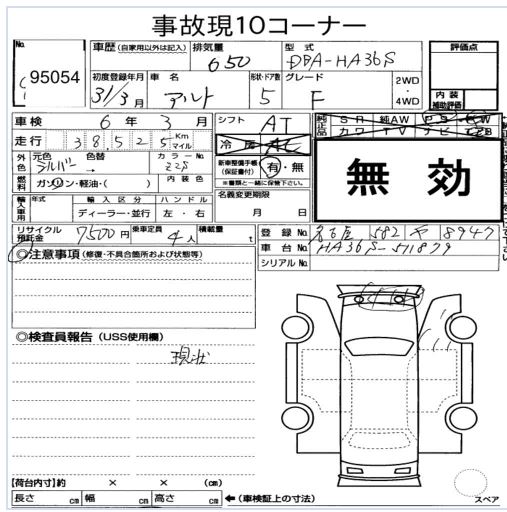 事故現10コーナー
No. 95054
車歴 (自家用以外は記入) 排気量 650 型式 DBA-HA36S 評価点
初度登録年月 31/3月 車名 アルト 形状・ドア数 5 グレード F 2WD・4WD 内装 補助評価
車検 6年3月 シフト AT
走行 38,525 Km マイル 冷房 AC
外色 元色 シルバー 色替 → カラーNo. Z2S 新車整備手帳(保証書付) 有・無 ※書類と一緒に保管下さい。
燃料 ガソリン・軽油・( ) 内装色 名義変更期限 月 日
輸入車用 年式 輸入区分 ディーラー・並行 ハンドル 左・右
純正品 SR 純AW PS PW カワ TV ナビ
無効
リサイクル預託金 7500円 乗車定員 4人 積載量
登録No 名古屋 582 8947
車台No HA36S-511879
シリアルNo
◎注意事項 (修復・不具合箇所および状態等)
◎検査員報告 (USS使用欄)
現状
【荷台内寸】約 × × (cm)
長さ cm 幅 cm 高さ cm ←(車検証上の寸法)
スペア